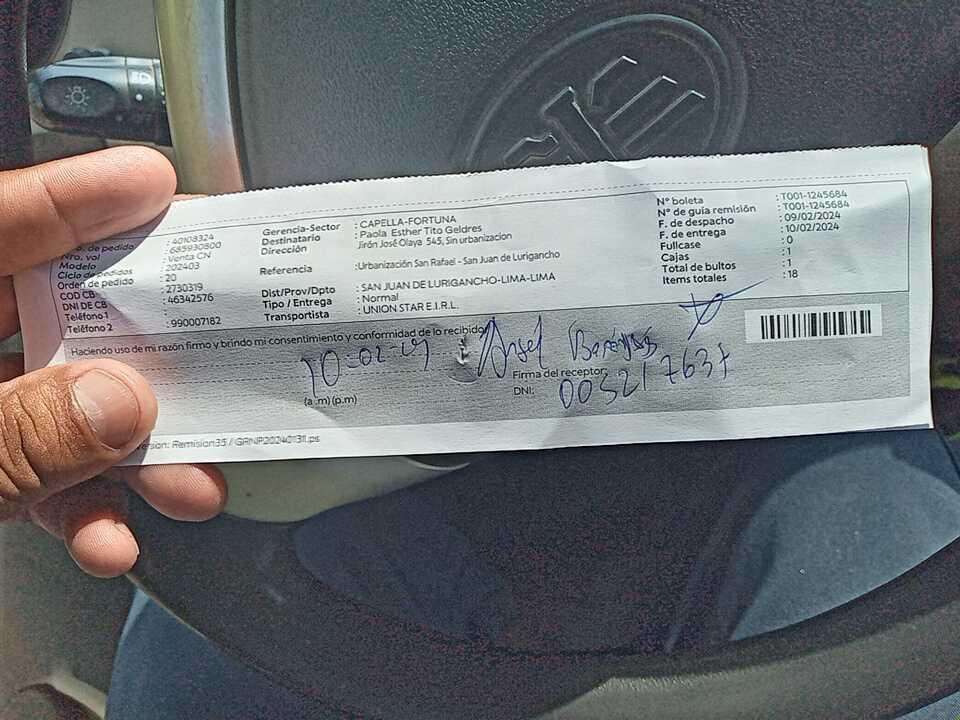 : 40108324
. de pedido : 685930800
Nro. vol : Venta CN
Modelo : 202403
Ciclo de pedidos : 20
Orden de pedido : 2730319
COD CB : 46342576
DNI DE CB
Teléfono 1 :
Teléfono 2 : 990007182
Gerencia-Sector : CAPELLA-FORTUNA
Destinatario : Paola Esther Tito Geldres
Dirección Jirón José Olaya 545, Sin urbanizacion
Referencia : Urbanización San Rafael - San Juan de Lurigancho
Dist/Prov/Dpto : SAN JUAN DE LURIGANCHO-LIMA-LIMA
Tipo / Entrega : Normal
Transportista : UNION STAR E.I.R.L.
N° boleta : T001-1245684
N° de guía remisión : T001-1245684
F. de despacho : 09/02/2024
F. de entrega : 10/02/2024
Fullcase : 0
Cajas : 1
Total de bultos : 1
Items totales : 18
Haciendo uso de mi razón firmo y brindo mi consentimiento y conformidad de lo recibido
10-02-24
(a .m) (p.m)
Firma del receptor:
DNI: 005217637
ersion: Remision35 / GRNP20240131.ps
KIA